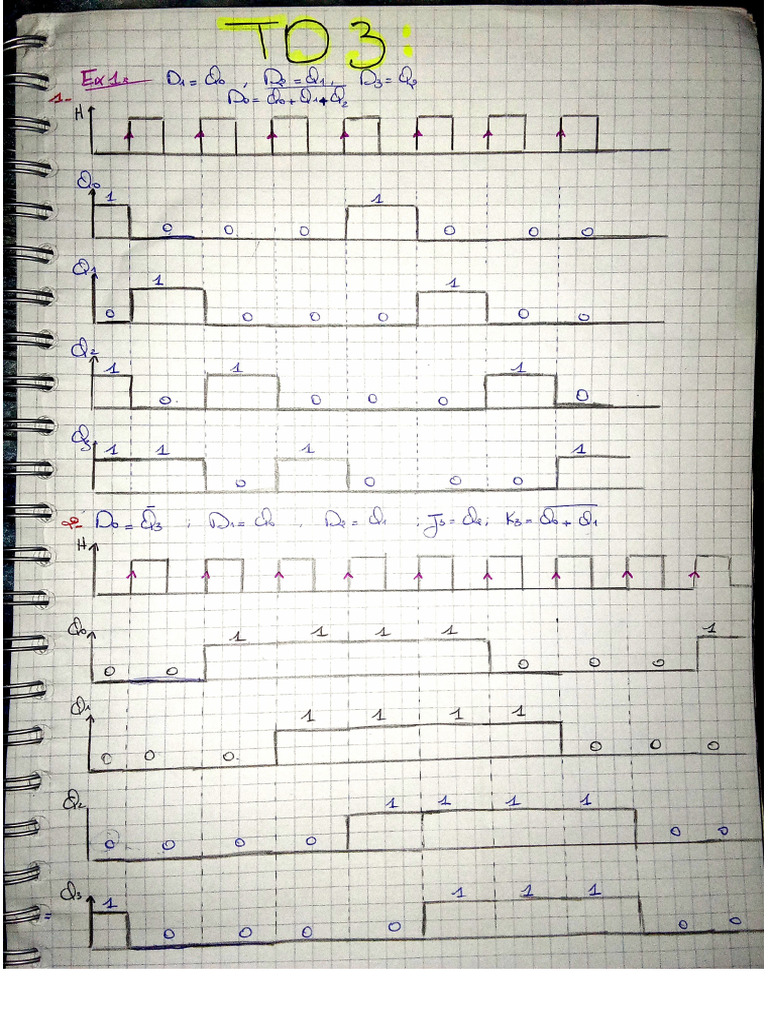 TD 3:
Ex 1: D₁ = Q₀ , D₂ = Q₁ , D₃ = Q₂
1- D₀ = \overline{Q₀ + Q₁ + Q₂}
H
Q₀ 1 0 0 0 1 0 0 0
Q₁ 0 1 0 0 0 1 0 0
Q₂ 1 0 1 0 0 0 1 0
Q₃ 1 1 0 1 0 0 0 1
2- D₀ = \overline{Q₃} ; D₁ = Q₀ , D₂ = Q₁ ; J₃ = Q₂ ; K₃ = \overline{Q₀ + Q₁}
H
Q₀ 0 0 1 1 1 1 0 0 0 1
Q₁ 0 0 0 1 1 1 1 0 0 0
Q₂ 0 0 0 0 1 1 1 1 0 0
Q₃ 1 0 0 0 0 1 1 1 0 0
=